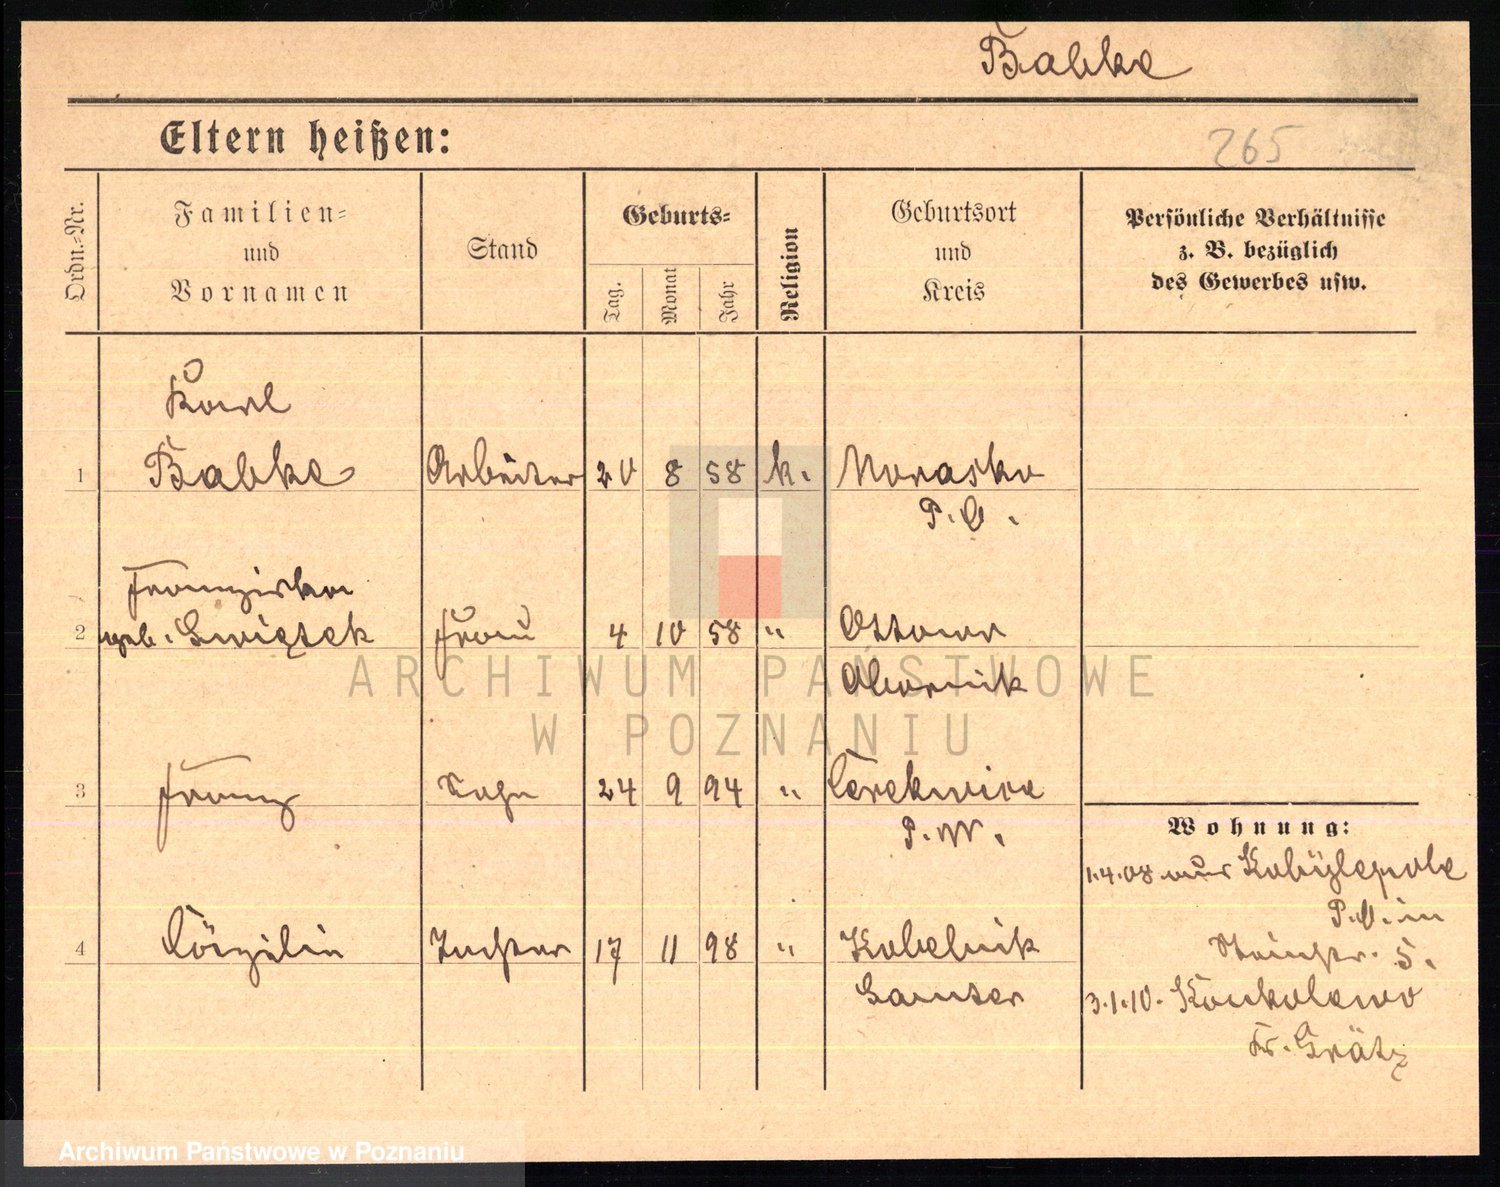 Babke
Eltern heißen:
265
Ordn.-Nr.
Familien-
und
Vornamen
Stand
Geburts-
Tag.
Monat
Jahr
Religion
Geburtsort
und
Kreis
Persönliche Verhältnisse
z. B. bezüglich
des Gewerbes usw.
Karl
1 Babke Arbeiter 20 8 58 k. Morasko
P. O.
Franziska
2 geb. Swiętek Frau 4 10 58 " Ottowo
Obornik
ARCHIWUM PAŃSTWOWE
W POZNANIU
3 Franz Sohn 24 9 94 " Cerekwica
P. W.
Wohnung:
1.4.08 aus Kobylepole
P. O. in
4 Cäzilie Tochter 17 11 98 " Kobelnik
Samter
5.
3.1.10. Konkolewo
Kr. Grätz
Archiwum Państwowe w Poznaniu